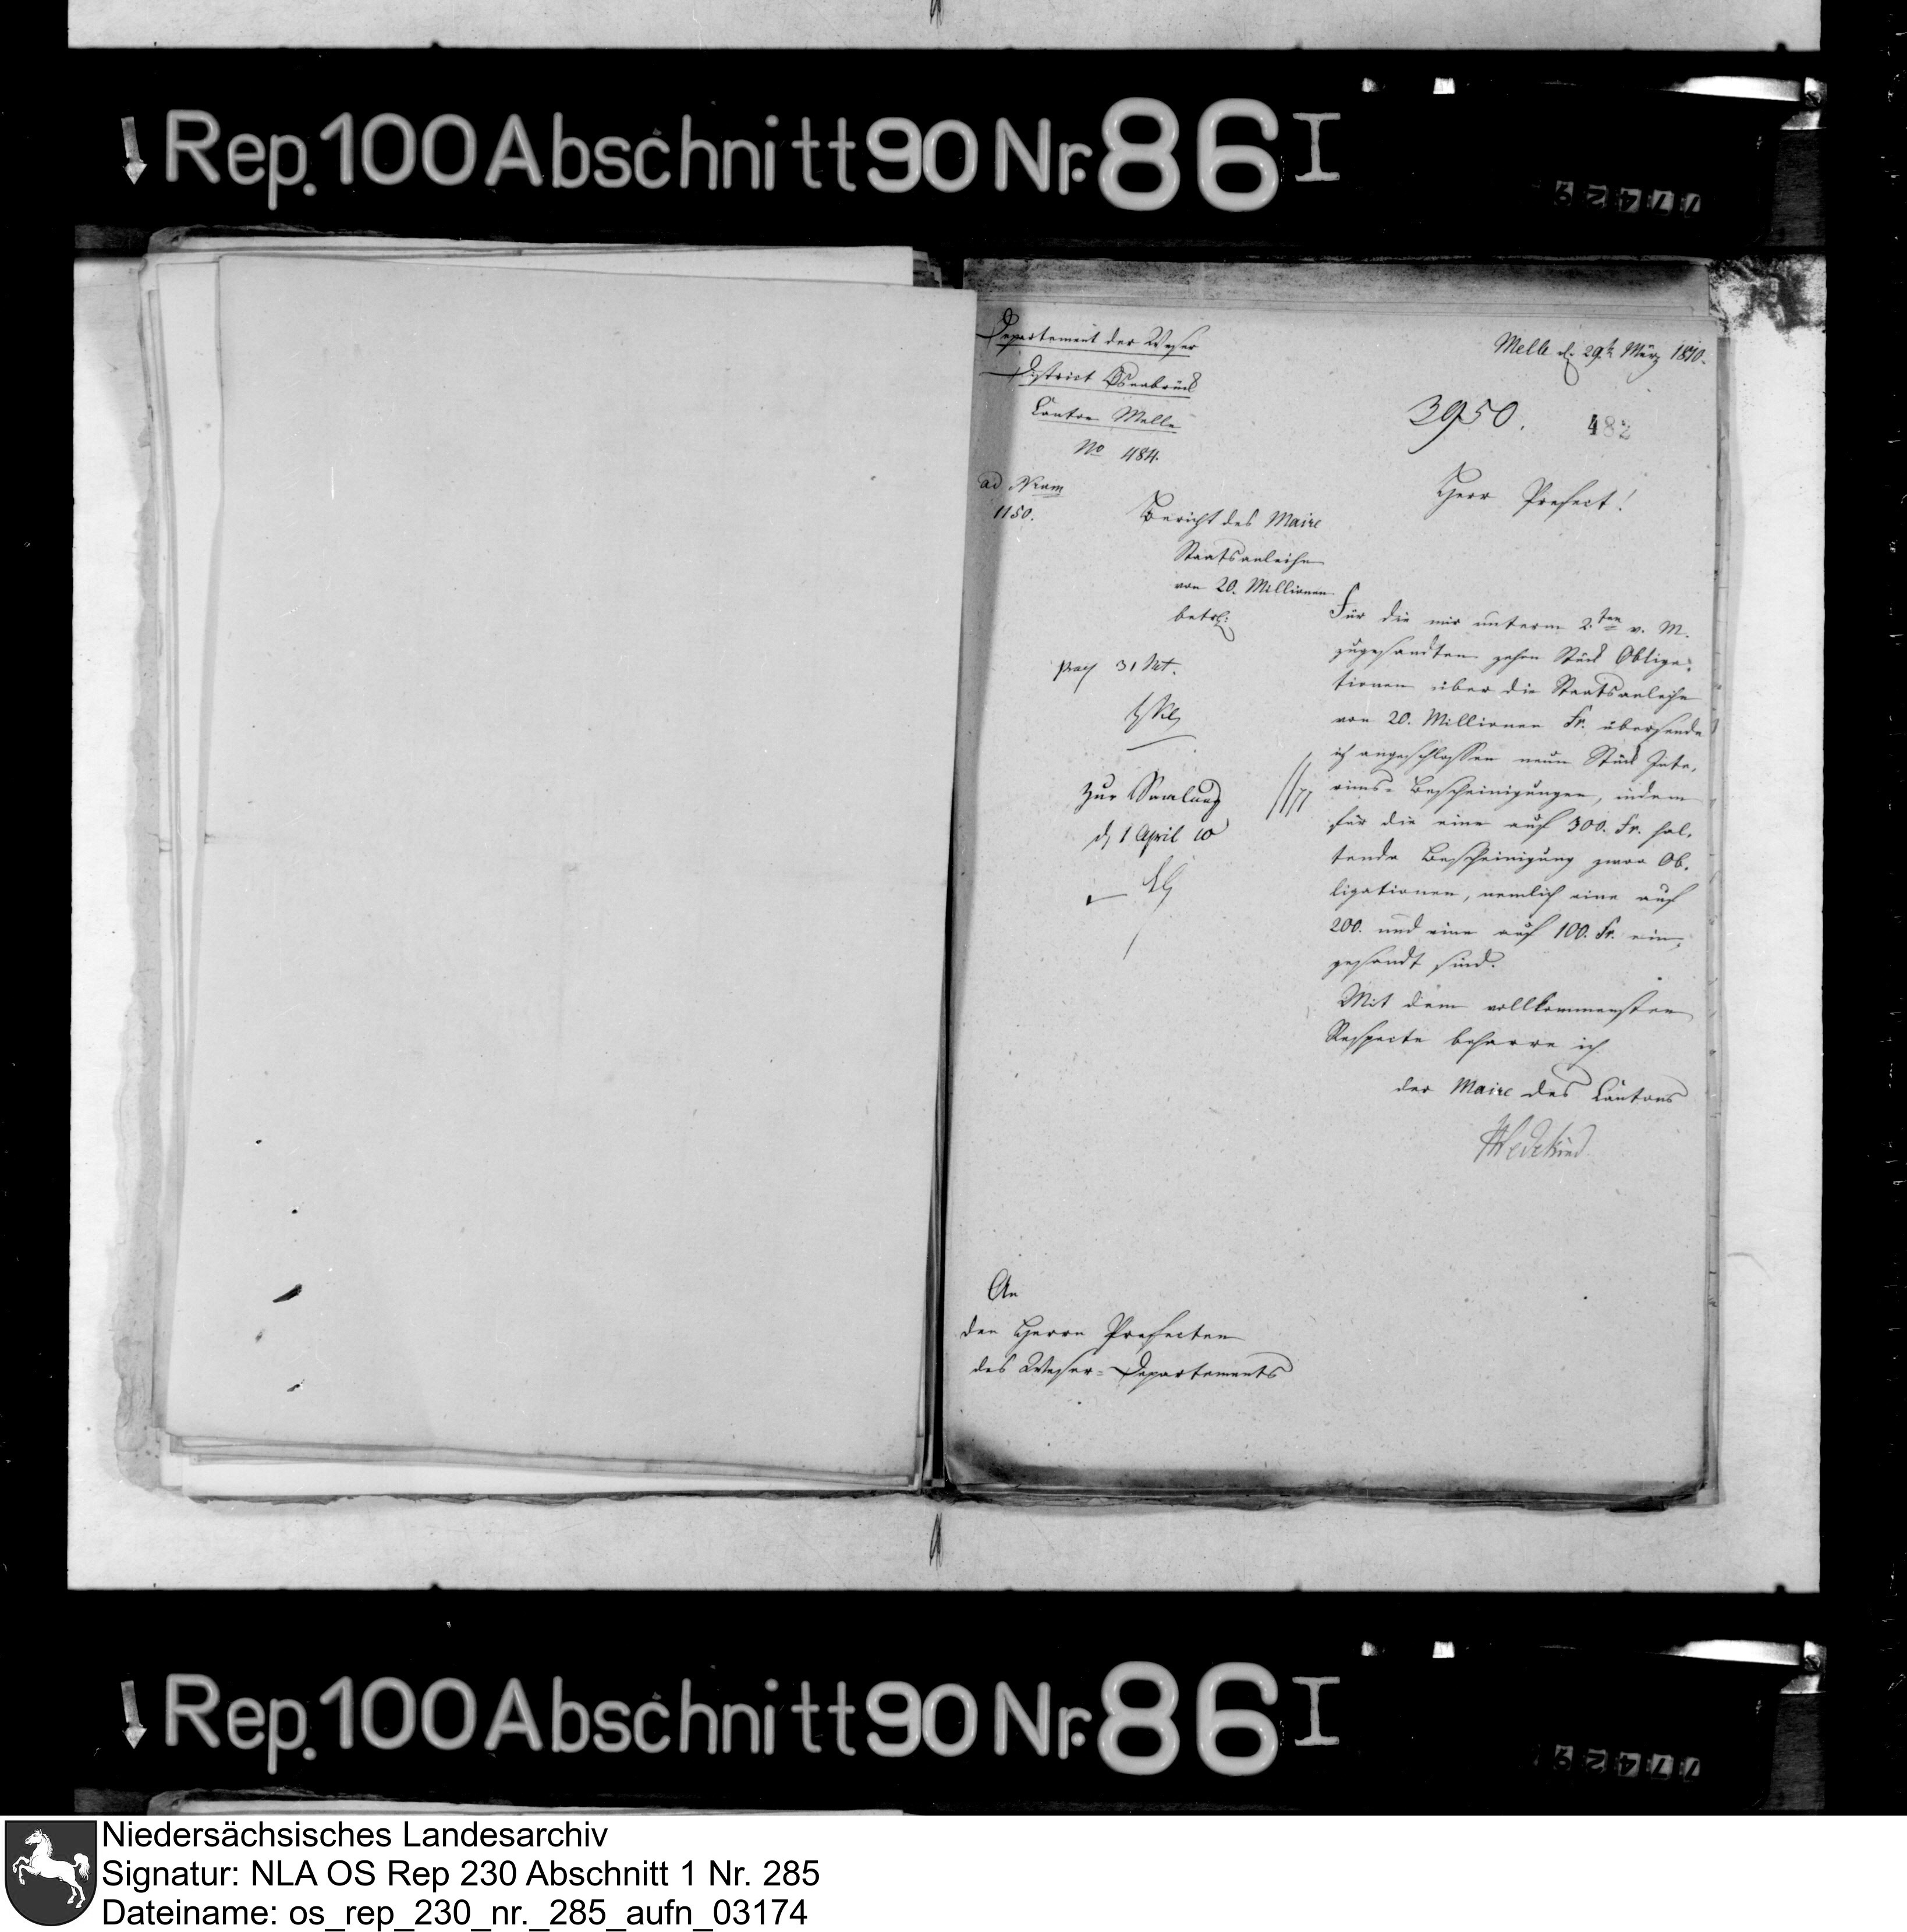 Rep. 100 Abschnitt 90 Nr. 86 I
77429
Departement der Weser
District Osnabrück
Canton Melle
No 484.
ad Num
1150.
Melle d. 29t. März 1810.
3950.
482
Herr Prefect!
Bericht des Maire
Staatsanleihe
von 20. Millionen
betr:
31 Mt.
Zur Samlung
d 1 April 10
Für die mir unterm 2ten v. M.
zugesandten zehn Stück Obliga-
tionen über die Staatsanleihe
von 20. Millionen Fr. übersende
ich angeschlossen neun Stück Inte-
rims-Bescheinigungen, indem
für die eine auf 300. Fr. hal-
tende Bescheinigung zwoo Ob-
ligationen, nemlich eine auf
200. und eine auf 100. Fr. ein-
gesandt sind.
Mit dem vollkommensten
Respecte beharre ich
der Maire des Cantons
Wedekind
An
den Herrn Prefecten
des Weser-Departements
Rep. 100 Abschnitt 90 Nr. 86 I
77429
Niedersächsisches Landesarchiv
Signatur: NLA OS Rep 230 Abschnitt 1 Nr. 285
Dateiname: os_rep_230_nr._285_aufn_03174